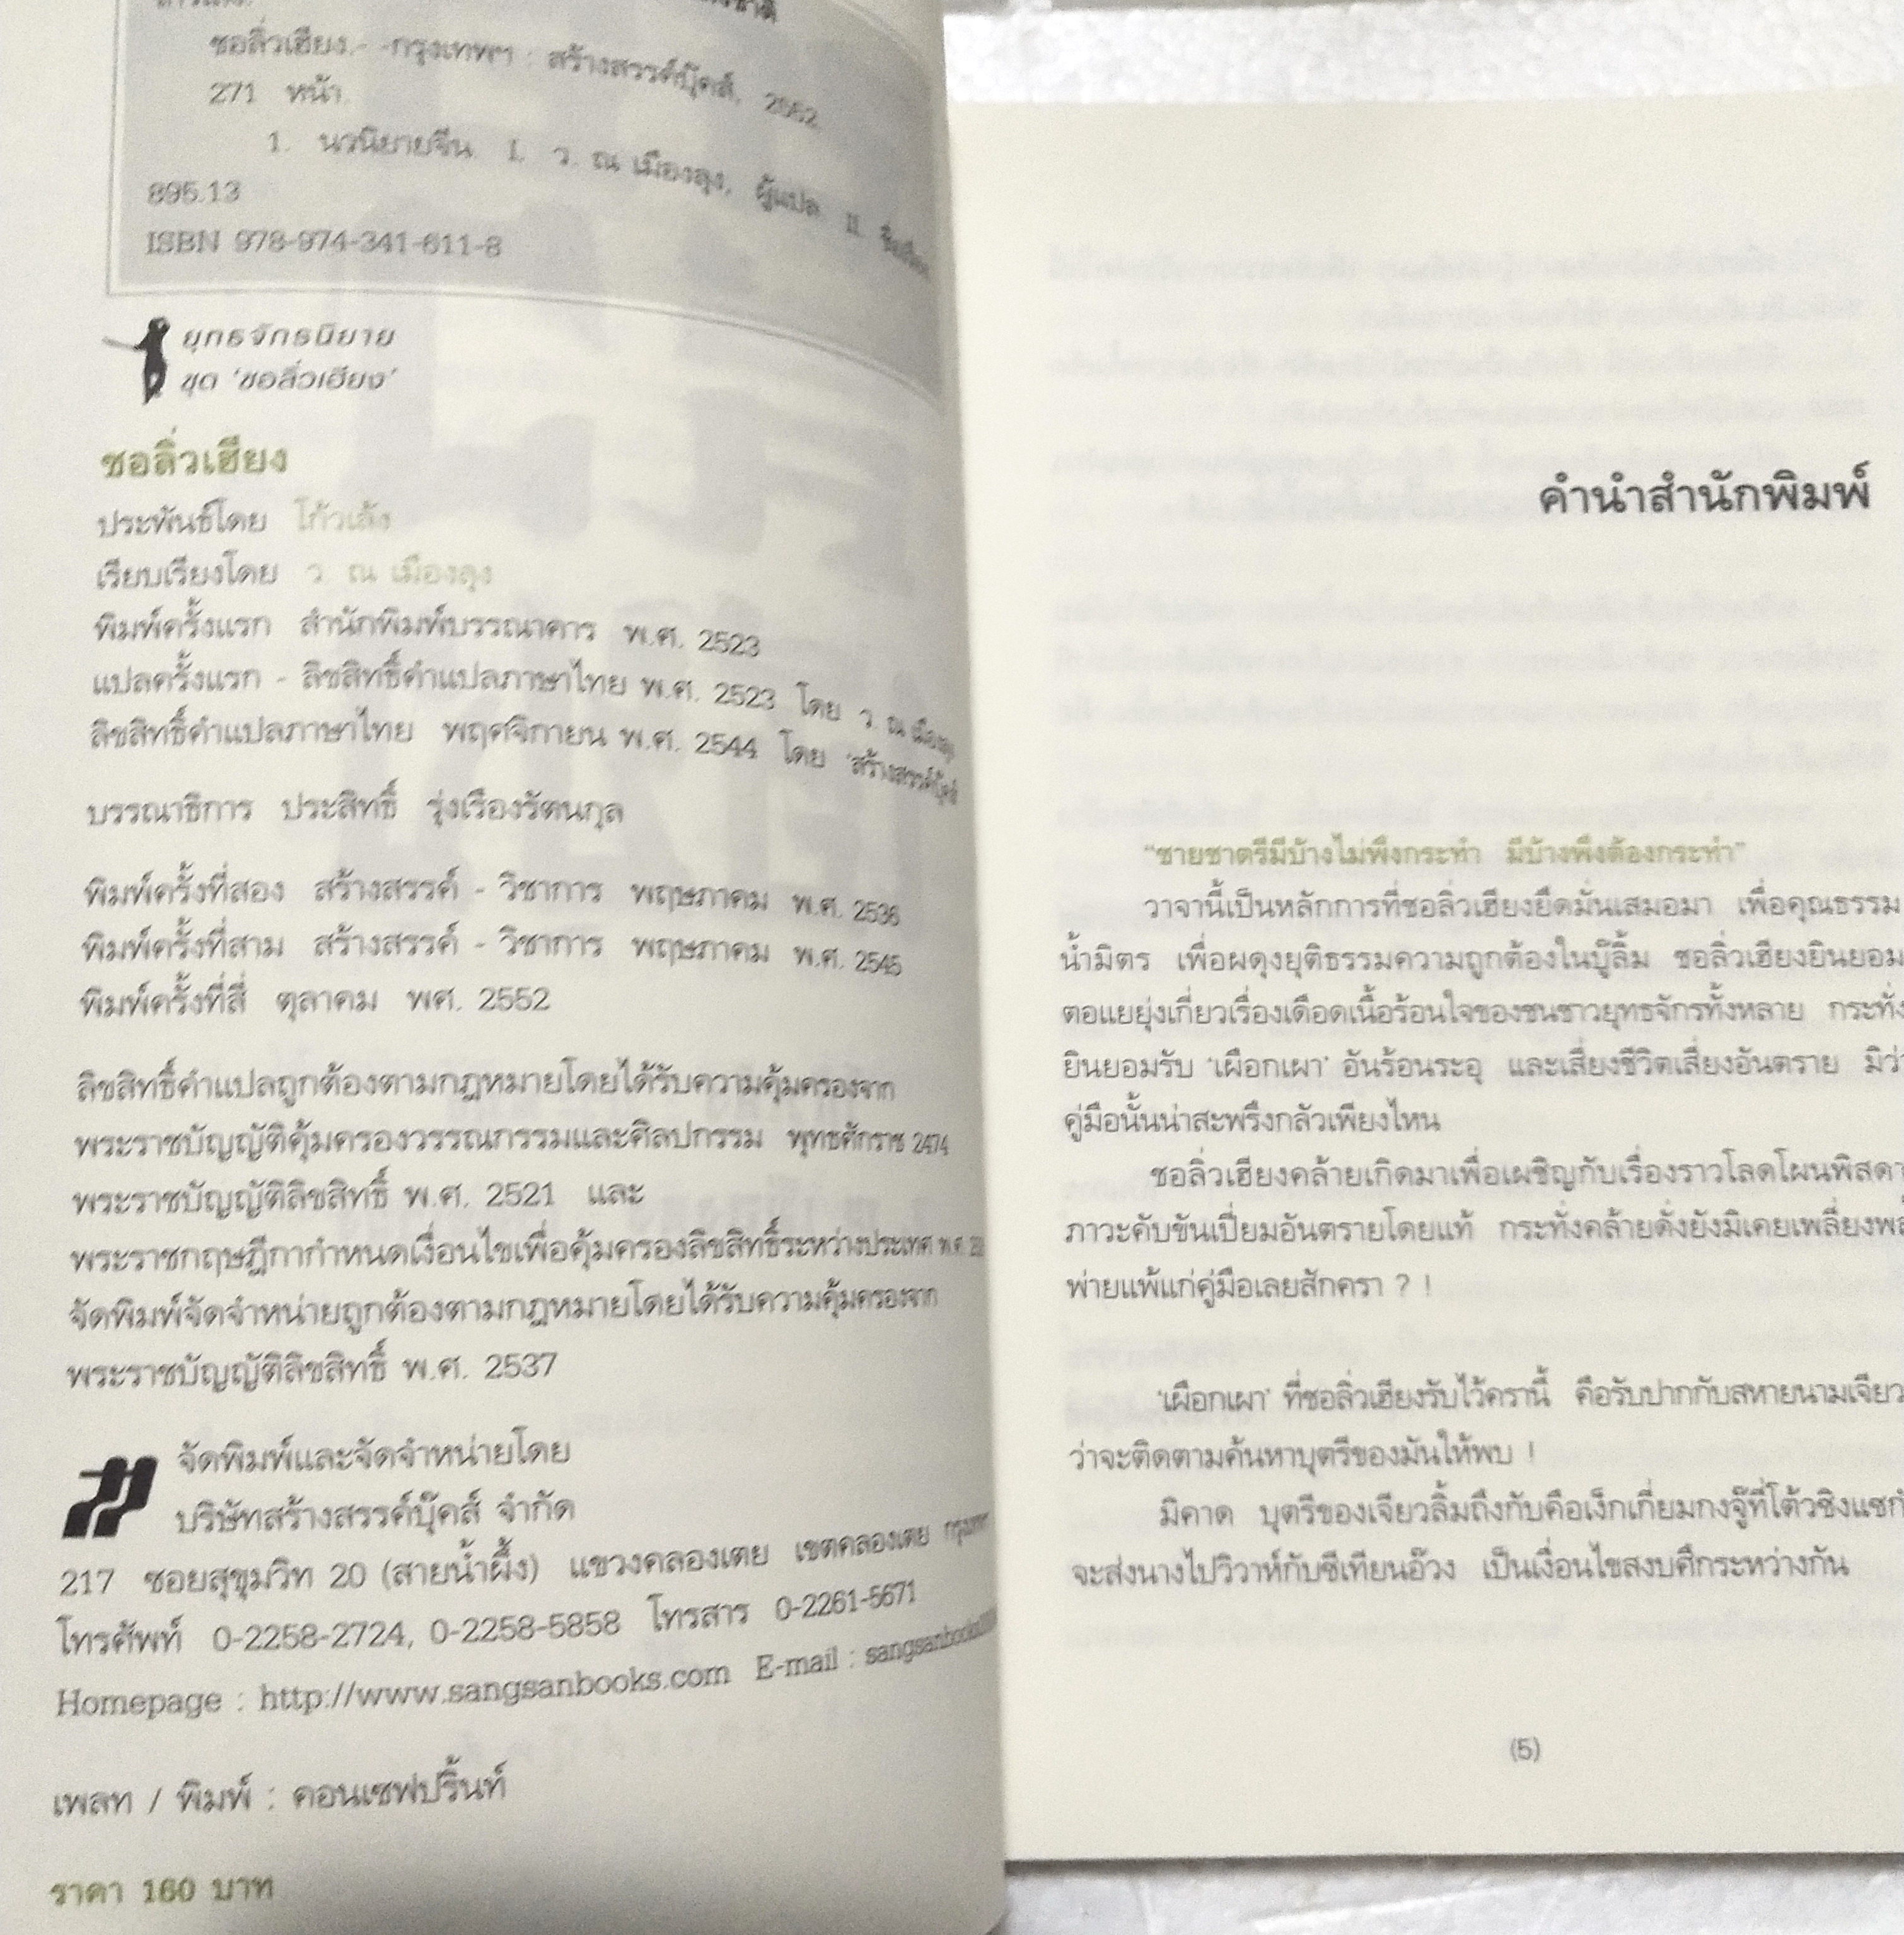 ชอลิ่วเฮียง.- -กรุงเทพฯ : สร้างสรรค์บุ๊คส์, 2552.
271 หน้า.
1. นวนิยายจีน. I. ว. ณ เมืองลุง, ผู้แปล. II. ชื่อเรื่อง.
895.13
ISBN 978-974-341-611-8
ยุทธจักรนิยาย
ชุด 'ชอลิ่วเฮียง'
ชอลิ่วเฮียง
ประพันธ์โดย โก้วเล้ง
เรียบเรียงโดย ว. ณ เมืองลุง
พิมพ์ครั้งแรก สำนักพิมพ์บรรณาคาร พ.ศ. 2523
แปลครั้งแรก - ลิขสิทธิ์คำแปลภาษาไทย พ.ศ. 2523 โดย ว. ณ เมืองลุง
ลิขสิทธิ์คำแปลภาษาไทย พฤศจิกายน พ.ศ. 2544 โดย 'สร้างสรรค์บุ๊คส์
บรรณาธิการ ประสิทธิ์ รุ่งเรืองรัตนกุล
พิมพ์ครั้งที่สอง สร้างสรรค์ - วิชาการ พฤษภาคม พ.ศ. 2536
พิมพ์ครั้งที่สาม สร้างสรรค์ - วิชาการ พฤษภาคม พ.ศ. 2545
พิมพ์ครั้งที่สี่ ตุลาคม พศ. 2552
ลิขสิทธิ์คำแปลถูกต้องตามกฎหมายโดยได้รับความคุ้มครองจาก
พระราชบัญญัติคุ้มครองวรรณกรรมและศิลปกรรม พุทธศักราช 2474
พระราชบัญญัติลิขสิทธิ์ พ.ศ. 2521 และ
พระราชกฤษฎีกากำหนดเงื่อนไขเพื่อคุ้มครองลิขสิทธิ์ระหว่างประเทศ พ.ศ.
จัดพิมพ์จัดจำหน่ายถูกต้องตามกฎหมายโดยได้รับความคุ้มครองจาก
พระราชบัญญัติลิขสิทธิ์ พ.ศ. 2537
จัดพิมพ์และจัดจำหน่ายโดย
บริษัทสร้างสรรค์บุ๊คส์ จำกัด
217 ซอยสุขุมวิท 20 (สายน้ำผึ้ง) แขวงคลองเตย เขตคลองเตย
โทรศัพท์ 0-2258-2724, 0-2258-5858 โทรสาร 0-2261-5671
Homepage : http://www.sangsanbooks.com E-mail : sangsanbooks
เพลท / พิมพ์ : คอนเซฟปริ้นท์
ราคา 160 บาท
คำนำสำนักพิมพ์
"ชายชาตรีมีบ้างไม่พึงกระทำ มีบ้างพึงต้องกระทำ"
วาจานี้เป็นหลักการที่ชอลิ่วเฮียงยึดมั่นเสมอมา เพื่อคุณธรรม
น้ำมิตร เพื่อผดุงยุติธรรมความถูกต้องในบู๊ลิ้ม ชอลิ่วเฮียงยินยอม
ตอแยยุ่งเกี่ยวเรื่องเดือดเนื้อร้อนใจของชนชาวยุทธจักรทั้งหลาย กระทั่ง
ยินยอมรับ 'เผือกเผา' อันร้อนระอุ และเสี่ยงชีวิตเสี่ยงอันตราย มิว่า
คู่มือนั้นน่าสะพรึงกลัวเพียงไหน
ชอลิ่วเฮียงคล้ายเกิดมาเพื่อเผชิญกับเรื่องราวโลดโผนพิสดาร
ภาวะคับขันเปี่ยมอันตรายโดยแท้ กระทั่งคล้ายดั่งยังมิเคยเพลี่ยงพล้ำ
พ่ายแพ้แก่คู่มือเลยสักครา ? !
'เผือกเผา' ที่ชอลิ่วเฮียงรับไว้ครานี้ คือรับปากกับสหายนามเจียว
ว่าจะติดตามค้นหาบุตรีของมันให้พบ !
มิคาด บุตรีของเจียวลิ้มถึงกับคือเง็กเกี่ยมกงจู๊ที่โต้วซิงแชกำ
จะส่งนางไปวิวาห์กับซีเทียนอ๊วง เป็นเงื่อนไขสงบศึกระหว่างกัน
(5)